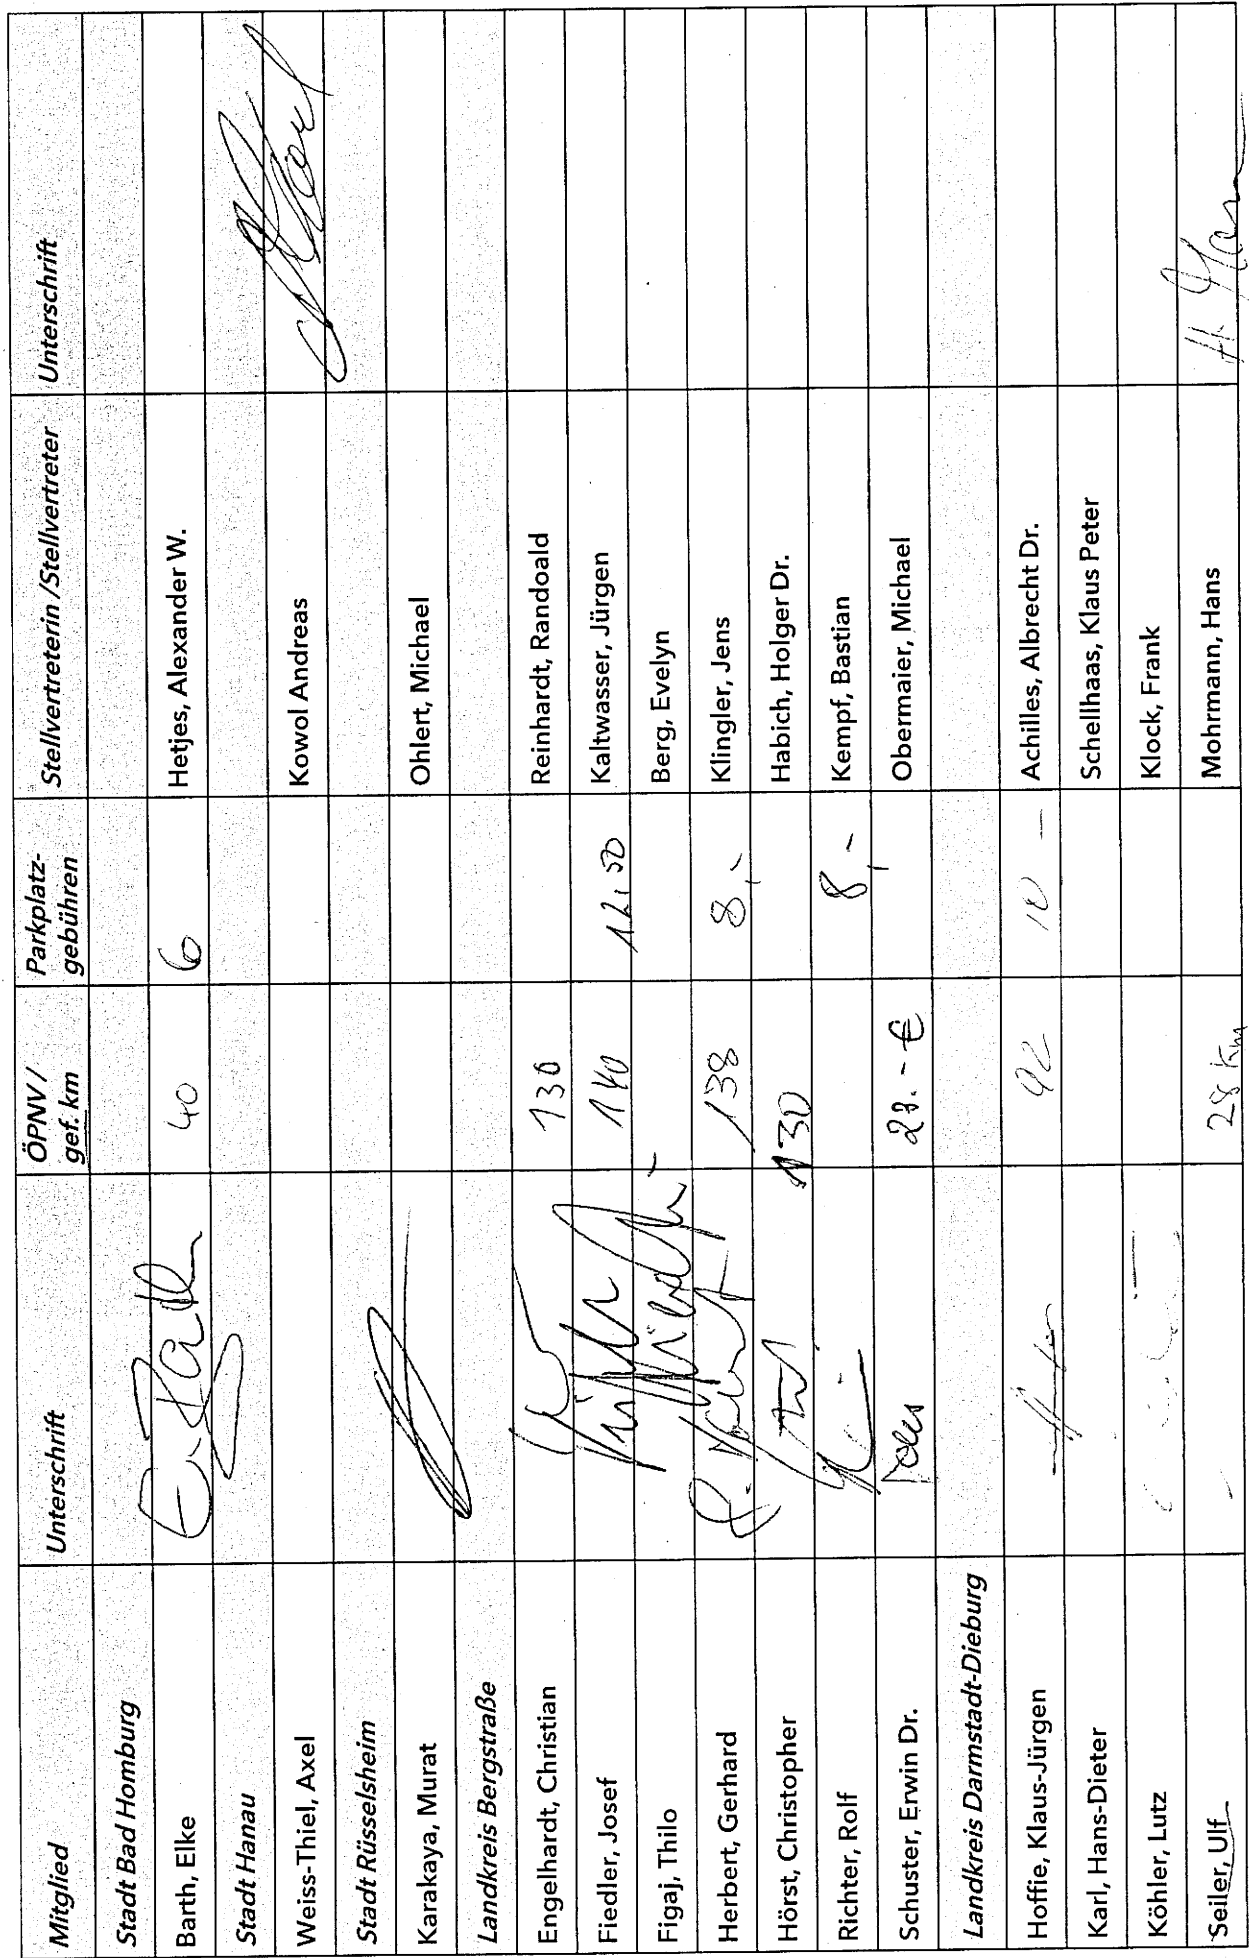 Mitglied Unterschrift ÖPNV / gef. km Parkplatz-gebühren Stellvertreterin /Stellvertreter Unterschrift
Stadt Bad Homburg
Barth, Elke E. Barth 40 6 Hetjes, Alexander W.
Stadt Hanau
Weiss-Thiel, Axel Kowol Andreas
Stadt Rüsselsheim
Karakaya, Murat Ohlert, Michael
Landkreis Bergstraße
Engelhardt, Christian 130 Reinhardt, Randoald
Fiedler, Josef 140 12,50 Kaltwasser, Jürgen
Figaj, Thilo Berg, Evelyn
Herbert, Gerhard 138 8,- Klingler, Jens
Hörst, Christopher 130 Habich, Holger Dr.
Richter, Rolf 8,- Kempf, Bastian
Schuster, Erwin Dr. 23.-€ Obermaier, Michael
Landkreis Darmstadt-Dieburg
Hoffie, Klaus-Jürgen 92 10 - Achilles, Albrecht Dr.
Karl, Hans-Dieter Schellhaas, Klaus Peter
Köhler, Lutz Klock, Frank
Seiler, Ulf 28 km Mohrmann, Hans